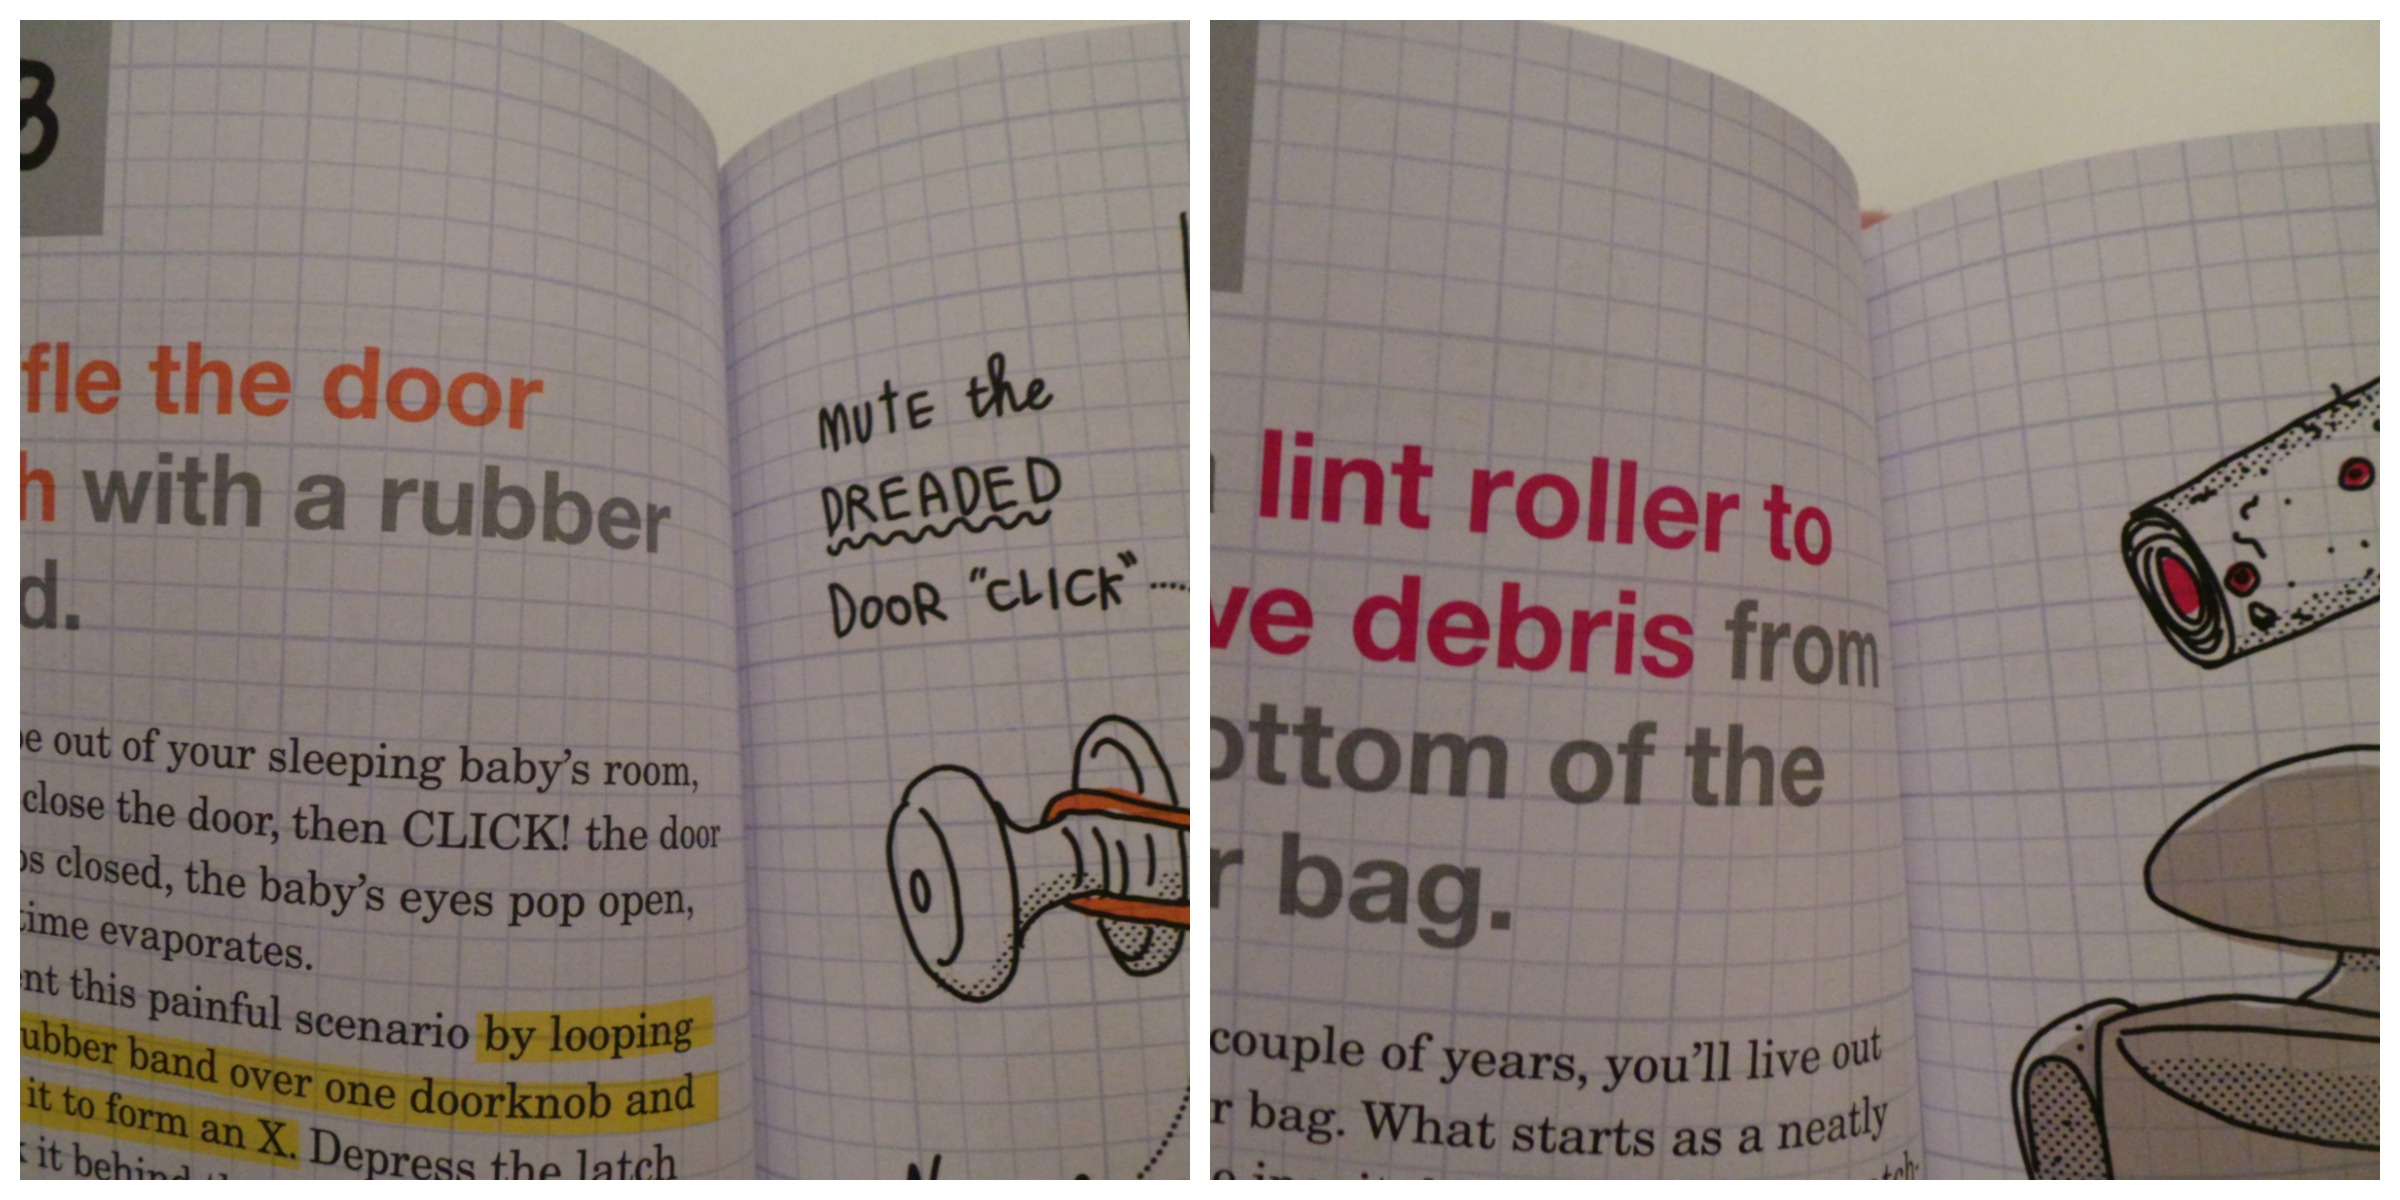 fle the door
h with a rubber
d.
e out of your sleeping baby's room,
close the door, then CLICK! the door
s closed, the baby's eyes pop open,
time evaporates.
ent this painful scenario by looping
ubber band over one doorknob and
it to form an X. Depress the latch
it behind
MUTE the
DREADED
DOOR "CLICK"
lint roller to
ve debris from
ottom of the
r bag.
couple of years, you'll live out
r bag. What starts as a neatly